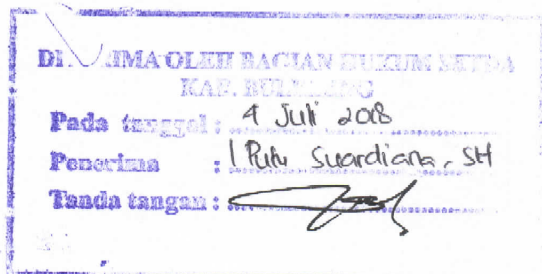 DITERIMA OLEH BAGIAN HUKUM SETDA
KAB. BULELENG
Pada tanggal : 4 Juli 2018
Penerima : I Putu Suardiana, SH
Tanda tangan :